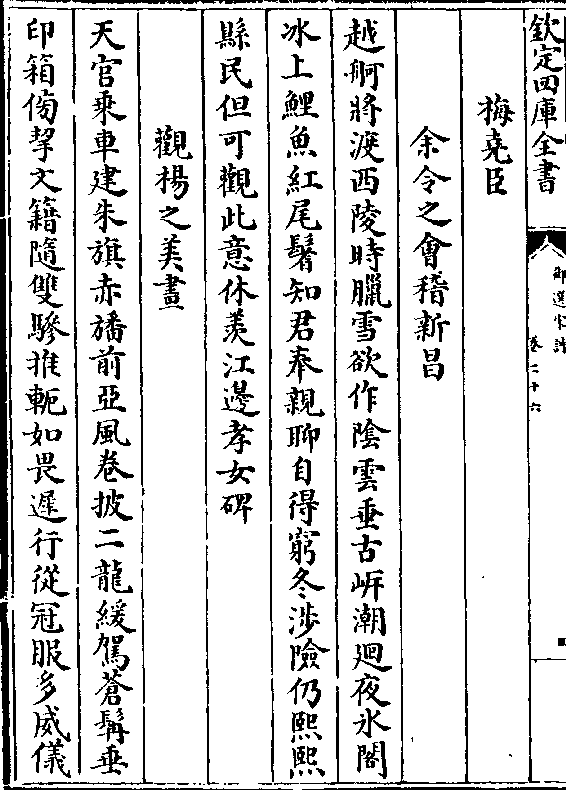 欽定四庫全書
御選宋詩
卷二十六
梅堯臣
余令之會稽新昌
越舸將渡西陵時臘雪欲作陰雲垂古岍潮迴夜氷閣
冰上鯉魚紅尾鬐知君奉親聊自得窮冬涉險仍熙熙
縣民但可觀此意休羨江邊孝女碑
觀楊之美畫
天官乘車建朱旗赤旛前亞風卷披二龍緩駕蒼髯垂
印箱俻挈文籍隨雙驂推軛如畏遲行從冠服多威儀